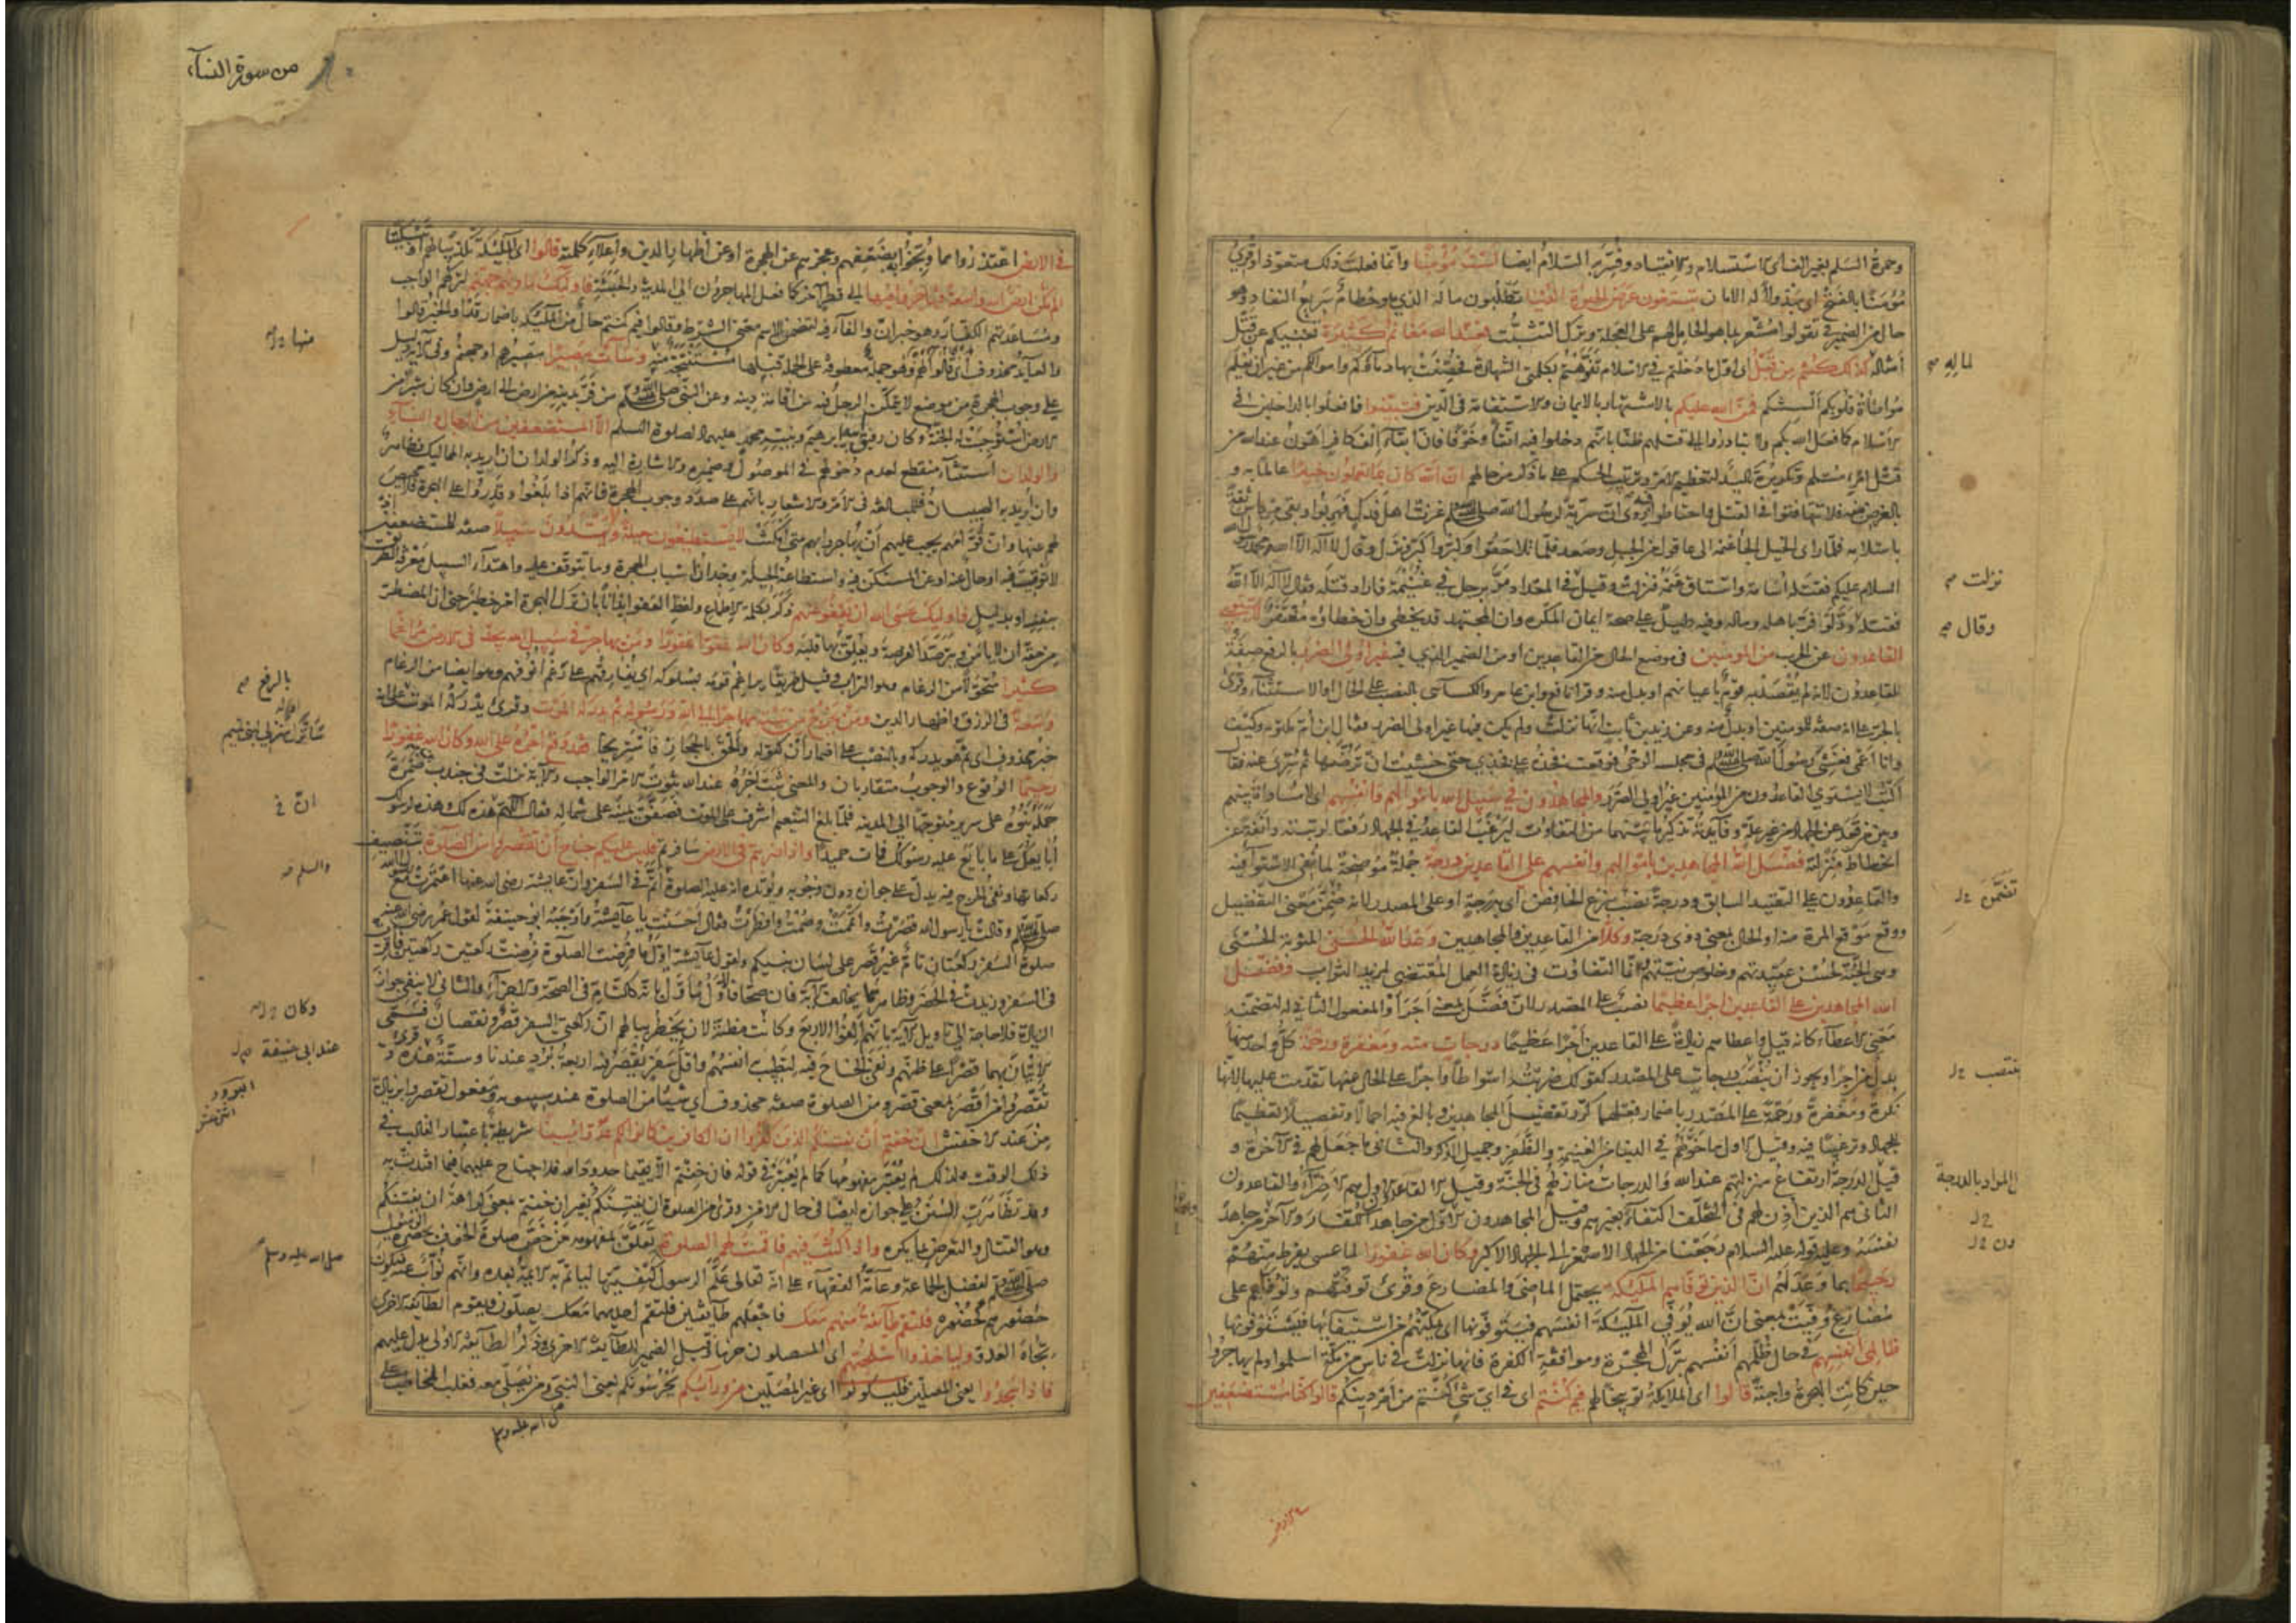 وحمزة السلم بغير الف اى الاستسلام والانقياد وفسر به السلام ايضا لست مؤمنا وانما فعلت ذلك متعوذا وقرئ
مؤمنا بالفتح اى مبذولا له الامان تبتغون عرض الحيوة الدنيا تطلبون ماله الذي هو حطام سريع النفاد وهو
حال من الضمير في تقولوا مشعر بما هو الحامل لهم على العجلة وترك التثبت فعند الله مغانم كثيرة تغنيكم عن قتل
امثاله كذلك كنتم من قبل اى اول ما دخلتم في الاسلام تفوهتم بكلمتي الشهادة فحصنت بها دماؤكم واموالكم من غير ان يعلم
مواطأة قلوبكم ألسنتكم فمن الله عليكم بالاشتهار بالايمان والاستقامة في الدين فتبينوا وافعلوا بالداخلين في
الاسلام كما فعل الله بكم ولا تبادروا الى قتلهم ظنا بانهم دخلوا فيه اتقاء وخوفا فان ابقاء الف كافر اهون عند الله من
قتل امرئ مسلم وتكريره تاكيد لتعظيم الامر وترتيب الحكم على ما ذكر من حالهم ان الله كان بما تعملون خبيرا عالما به و
بالغرض منه فلا تتهافتوا في القتل واحتاطوا فيه روى ان سرية لرسول الله صلى الله عليه وسلم غزت اهل فدك فهربوا وبقي مرداس ثقة
باسلامه فلما راى الخيل الجأ غنمه الى عاقول من الجبل وصعد فلما تلاحقوا وكبروا كبر ونزل وقال لا اله الا الله محمد رسول الله
السلام عليكم فقتله اسامة واستاق غنمه فنزلت وقيل في المقداد مر برجل في غنيمة فاراد قتله فقال لا اله الا الله
فقتله وقال ود لو فر باهله وماله وفيه دليل على صحة ايمان المكره وان المجتهد قد يخطئ وان خطاءه مغتفر لا يستوي
القاعدون عن الحرب من المومنين في موضع الحال من القاعدين او من الضمير الذي فيه غير اولى الضرر بالرفع صفة
للقاعدون لانه لم يقصد به قوم باعيانهم او بدل منه وقرأ نافع وابن عامر والكسائى بالنصب على الحال او الاستثناء وقرئ
بالجر على انه صفة للمومنين او بدل منه وعن زيد بن ثابت انها نزلت ولم يكن فيها غير اولى الضرر فقال ابن ام مكتوم وكيف
وانا اعمى فغشى رسول الله صلى الله عليه وسلم في مجلسه الوحى فوقعت فخذه على فخذي حتى خشيت ان ترضها ثم سرى عنه فقال
اكتب لا يستوي القاعدون من المؤمنين غير اولى الضرر والمجاهدون في سبيل الله باموالهم وانفسهم اى لا مساواة بينهم
وبين من قعد عن الجهاد من غير علة وفائدته تذكير ما بينهما من التفاوت ليرغب القاعد في الجهاد رفعا لرتبته وانفة عن
انحطاط منزلته فضل الله المجاهدين باموالهم وانفسهم على القاعدين درجة جملة موضحة لما نفى الاستواء فيه
والقاعدون على التقييد السابق ودرجة نصب بنزع الخافض اى بدرجة او على المصدر لانه ضمن معنى التفضيل
ووقع موقع المرة منه او الحال بمعنى ذوى درجة وكلا من القاعدين والمجاهدين وعد الله الحسنى المثوبة الحسنى
وهي الجنة لحسن عقيدتهم وخلوص نيتهم وانما التفاوت في زيادة العمل المقتضى لمزيد الثواب وفضل
الله المجاهدين على القاعدين اجرا عظيما نصب على المصدر لان فضل بمعنى اجر او المفعول الثاني له لتضمنه
معنى الاعطاء كانه قيل واعطاهم زيادة على القاعدين اجرا عظيما درجات منه ومغفرة ورحمة كل واحد منها
بدل من اجرا ويجوز ان ينصب درجات على المصدر كقولك ضربته اسواطا واجرا على الحال عنها تقدمت عليها لانها
نكرة ومغفرة ورحمة على المصدر باضمار فعلهما كرر تفضيل المجاهدين وبالغ فيه اجمالا وتفصيلا تعظيما
للجهاد وترغيبا فيه وقيل الاول ما خولهم في الدنيا من الغنيمة والظفر وجميل الذكر والثانى ما جعل لهم في الآخرة و
قيل الدرجة ارتفاع منزلتهم عند الله والدرجات منازلهم في الجنة وقيل القاعدون الاول هم الاضراء والقاعدون
الثانى هم الذين أذن لهم في التخلف اكتفاء بغيرهم وقيل المجاهدون الاول من جاهد الكفار والآخر من جاهد
نفسه وعليه قوله عليه السلام رجعنا من الجهاد الاصغر الى الجهاد الاكبر وكان الله غفورا لما عسى يفرط منهم
رحيما بما وعد لهم ان الذين توفاهم الملئكة يحتمل الماضى والمضارع وقرئ توفتهم وتوفاهم على
مضارع وفيت بمعنى ان الله يوفى الملئكة انفسهم فيتوفونها اى يمكنهم من استيفائها فيستوفونها
ظالمى انفسهم في حال ظلمهم انفسهم بترك الهجرة وموافقة الكفرة فانها نزلت في ناس من مكة اسلموا ولم يهاجروا
حين كانت الهجرة واجبة قالوا اى الملائكة توبيخا لهم فيم كنتم اى في اى شئ كنتم من امر دينكم قالوا كنا مستضعفين
لماله
نزلت
وقال
تضمن
المراد بالدرجة
من سورة النساء
في الارض اعتذروا مما وبخوا به بضعفهم وعجزهم عن الهجرة او عن اظهار الدين واعلاء كلمته قالوا اى الملئكة تكذيبا لهم او تبكيتا
الم تكن ارض الله واسعة فتهاجروا فيها الى قطر آخر كما فعل المهاجرون الى المدينة والحبشة فاولئك ماويهم جهنم لتركهم الواجب
ومساعدتهم الكفار وهو خبر ان والفاء فيه لتضمن الاسم معنى الشرط وقالوا فيم كنتم حال من الملئكة باضمار قد او الخبر قالوا
والعائد محذوف اى قالوا لهم وهو جملة معطوفة على الجملة قبلها مستنتجة منها وساءت مصيرا مصيرهم او جهنم وفي الآية دليل
على وجوب الهجرة من موضع لا يتمكن الرجل فيه من اقامة دينه وعن النبي صلى الله عليه وسلم من فر بدينه من ارض الى ارض وان كان شبرا من
الارض استوجبت له الجنة وكان رفيق ابيه ابرهيم ونبيه محمد عليهما الصلوة والسلم الا المستضعفين من الرجال والنساء
والولدان استثناء منقطع لعدم دخولهم في الموصول وضميره والاشارة اليه وذكر الولدان ان اريد به المماليك فظاهر
وان اريد به الصبيان فللمبالغة في الامر والاشعار بانهم على صدد وجوب الهجرة فانهم اذا بلغوا وقدروا على الهجرة فلا محيص
لهم عنها وان قوامهم يجب عليهم ان يهاجروا بهم متى امكنت لا يستطيعون حيلة ولا يهتدون سبيلا صفة للمستضعفين اذ
لا توقيت فيه او حال عنه او عن المستكن فيه واستطاعة الحيلة وجدان اسباب الهجرة وما يتوقف عليه واهتداء السبيل معرفة الطريق
بنفسه او بدليل فاولئك عسى الله ان يعفو عنهم ذكر بكلمة الاطماع ولفظ العفو ايذانا بان ترك الهجرة امر خطير حتى ان المضطر
من حقه ان لا يامن ويترصد الفرصة ويعلق بها قلبه وكان الله عفوا غفورا ومن يهاجر في سبيل الله يجد في الارض مراغما
كثيرا متحولا من الرغام وهو التراب وقيل طريقا يراغم قومه بسلوكه اى يفارقهم على رغم انوفهم وهو ايضا من الرغام
وسعة في الرزق واظهار الدين ومن يخرج من بيته مهاجرا الى الله ورسوله ثم يدركه الموت وقرئ يدركه الموت على انه
خبر محذوف اى ثم هو يدركه وبالنصب على اضمار ان كقوله والحق بالحجاز فاستريحا فقد وقع اجره على الله وكان الله غفورا
رحيما الوقوع والوجوب متقاربان والمعنى ثبت اجره عند الله ثبوت الامر الواجب والآية نزلت في جندب بن ضمرة
حمله بنوه على سرير متوجها الى المدينة فلما بلغ التنعيم اشرف على الموت فصفق بيمينه على شماله فقال اللهم هذه لك وهذه لرسولك
أبايعك على ما بايع عليه رسولك فمات حميدا واذا ضربتم في الارض سافرتم فليس عليكم جناح أن تقصروا من الصلوة بتنصيف
ركعاتها ونفى الحرج فيه يدل على جوازه دون وجوبه ويؤيده انه عليه الصلوة أتم في السفر وان عايشة رضى الله عنها اعتمرت مع رسول الله
صلى الله عليه وسلم وقالت يا رسول الله قصرت وأتممت وصمت وافطرت فقال احسنت يا عايشة واوجبه ابو حنيفة لقول عمر رضى الله عنه
صلوة السفر ركعتان تام غير قصر على لسان نبيكم ولقول عايشة اول ما فرضت الصلوة فرضت ركعتين ركعتين فاقرت
في السفر وزيدت في الحضر وظاهرهما يخالف الآية فان صحا فالاول مأول بانه كالتام في الصحة والاجزاء والثانى لا ينفى جواز
الزيادة فلا حاجة الى تاويل الآية بانهم الفوا الاربع وكانت مظنة لان يخطر ببالهم ان ركعتى السفر قصر ونقصان فسمى
الاتيان بهما قصرا على ظنهم ونفى الجناح فيه لتطيب انفسهم واقل سفر تقصر فيه اربعة برد عندنا وستة عنده وقرئ
تقصروا من اقصر بمعنى قصر ومن الصلوة صفة محذوف اى شيئا من الصلوة عند سيبويه ومفعول تقصروا بزيادة
من عند الاخفش ان خفتم أن يفتنكم الذين كفروا ان الكافرين كانوا لكم عدوا مبينا شريطة باعتبار الغالب في
ذلك الوقت ولذلك لم يعتبر مفهومها كما لم يعتبر في قوله فان خفتم الا يقيما حدود الله فلا جناح عليهما فيما افتدت به
وقد تظاهرت السنن على جوازه ايضا في حال الامن وقرئ من الصلوة ان يفتنكم بغير ان خفتم بمعنى كراهة ان يفتنكم
وهو القتال والتعرض بما يكره واذا كنت فيهم فاقمت لهم الصلوة تعلق بمفهومه من خص صلوة الخوف بحضرة الرسول
صلى الله عليه وسلم لفضل الجماعة وعامة الفقهاء على انه تعالى علم الرسول كيفيتها ليأتم به الائمة بعده وانهم نواب عنه فيكون
حضورهم كحضوره فلتقم طائفة منهم معك فاجعلهم طائفتين فلتقم احديهما معك يصلون ويقوم الطائفة الاخرى
تجاه العدو ولياخذوا اسلحتهم اى المصلون حزما وقيل الضمير للطائفة الاخرى وذكر الطائفة الاولى يدل عليهم
فاذا سجدوا يعنى المصلين فليكونوا اى غير المصلين من ورائكم يحرسونكم يعنى النبى ومن يصلى معه فغلب المخاطب على
منها
بالرفع
والسلم
وكان
عند ابى حنيفة
صلى الله عليه وسلم
صلى الله عليه وسلم